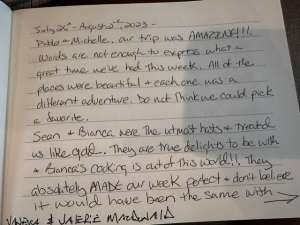 July 26th - August 2nd, 2023 -
& Michelle, our trip was AMAZING!!!
Words are not enough to express what a
great time we've had this week. All of the
places were beautiful & each one was a
different adventure. Do not think we could pick
a favorite.
Sean & Bianca were the utmost hosts & treated
us like gold. They are true delights to be with
& Bianca's cooking is out of this world!! They
absolutely MADE our week perfect & don't believe
it would have been the same with →
& MACDONALD